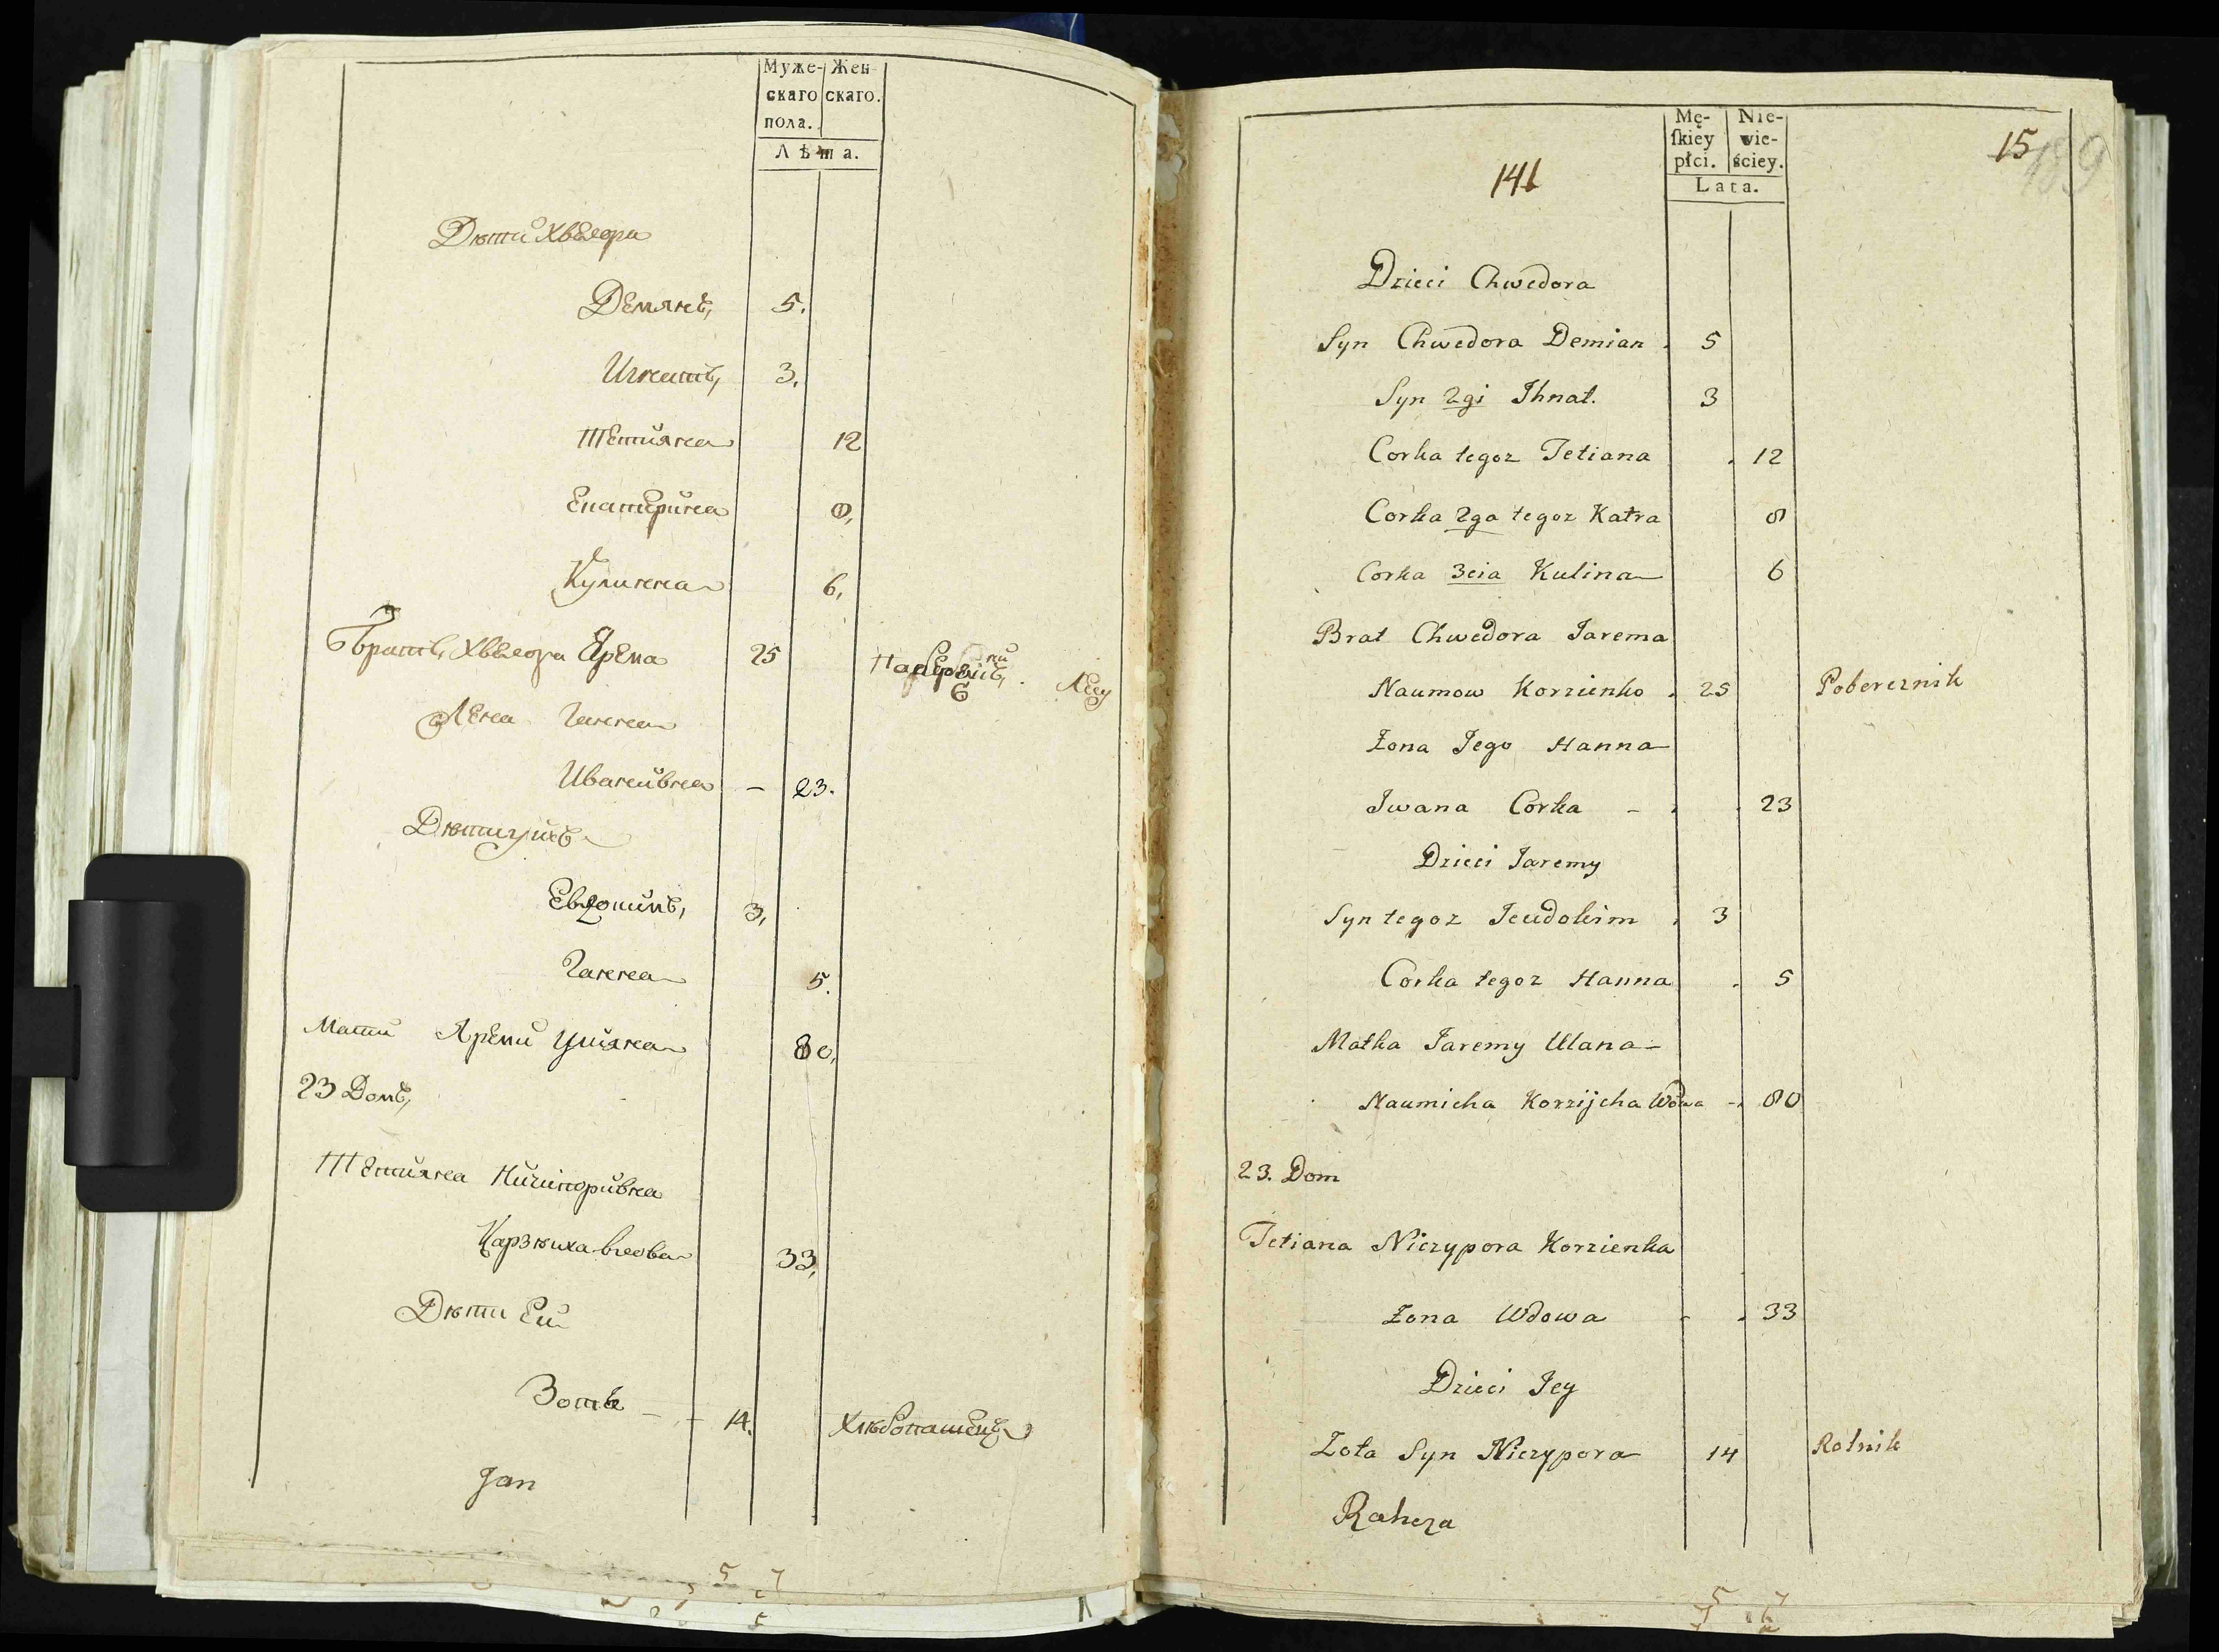 Муже- Жен-
скаго скаго.
пола.
Лѣта.
Дѣти Хведора
Демянъ, 5.
Игнатъ, 3.
Тетияна 12
Екатерина 8,
Кулинна 6,
Братъ, Хведора Ярема 25
Лесу
Жена Ганна
Иванивна - 23.
Дѣти ихъ
Евдокимъ, 3,
Ганна 5.
Мати Яреми Улияна 80,
23 Домъ,
Тетияна Ничипоривна
Карзѣиха вдова 33,
Дѣти Ей
Зотъ - - 14. Хлѣбопашецъ
Jan
Mę- Nie-
ſkiey wie-
płci. ściey.
Lata.
141
15
189
Dzieci Chwedora
Syn Chwedora Demian . 5
Syn 2gi Ihnat. 3
Corka tegoz Tetiana . 12
Corka 2ga tegoz Katra 8
Corka 3cia Kulina 6
Brat Chwedora Jarema
Naumow Korzienko . 25 Pobereznik
Zona Jego Hanna
Jwana Corka - . . 23
Dzieci Jaremy
Syn tegoz Jeudokim . 3
Corka tegoz Hanna . 5
Matka Jaremy Ulana -
Naumicha Korzijcha Wdowa - . 80
23. Dom
Tetiana Niczypora Korzienka
Zona Wdowa - . 33
Dzieci Jey
Zota Syn Niczypora 14 Rolnik
Rahoza